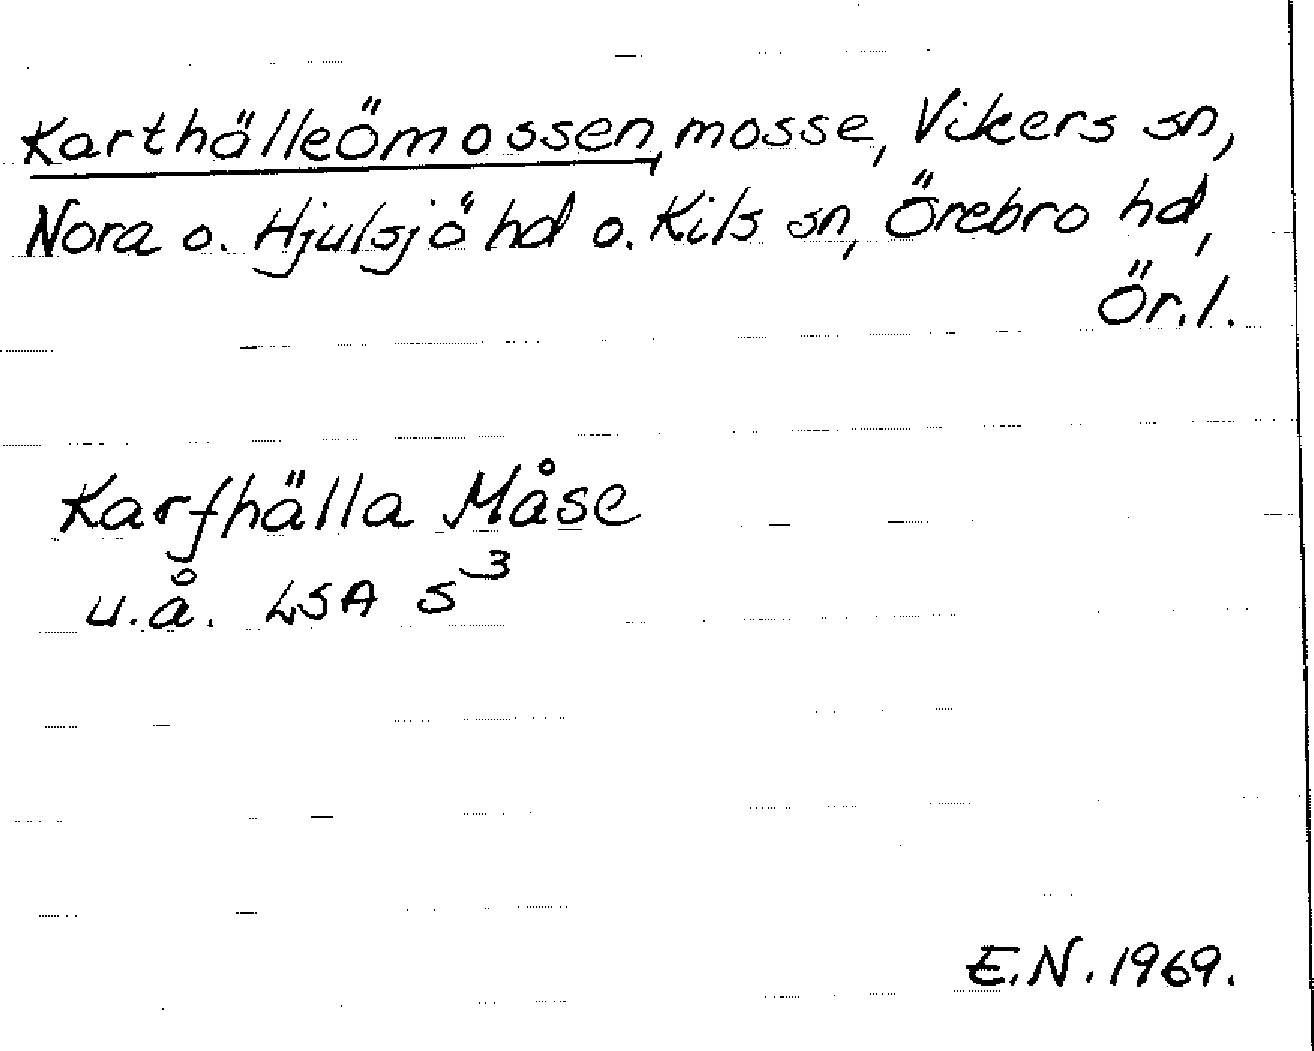 Karthälleömossen, mosse, Vikers sn,
Nora o. Hjulsjö hd o. Kils sn, Örebro hd,
Ör. l.
Karfhälla Måse
u.å. LSA S 3
E.N. 1969.